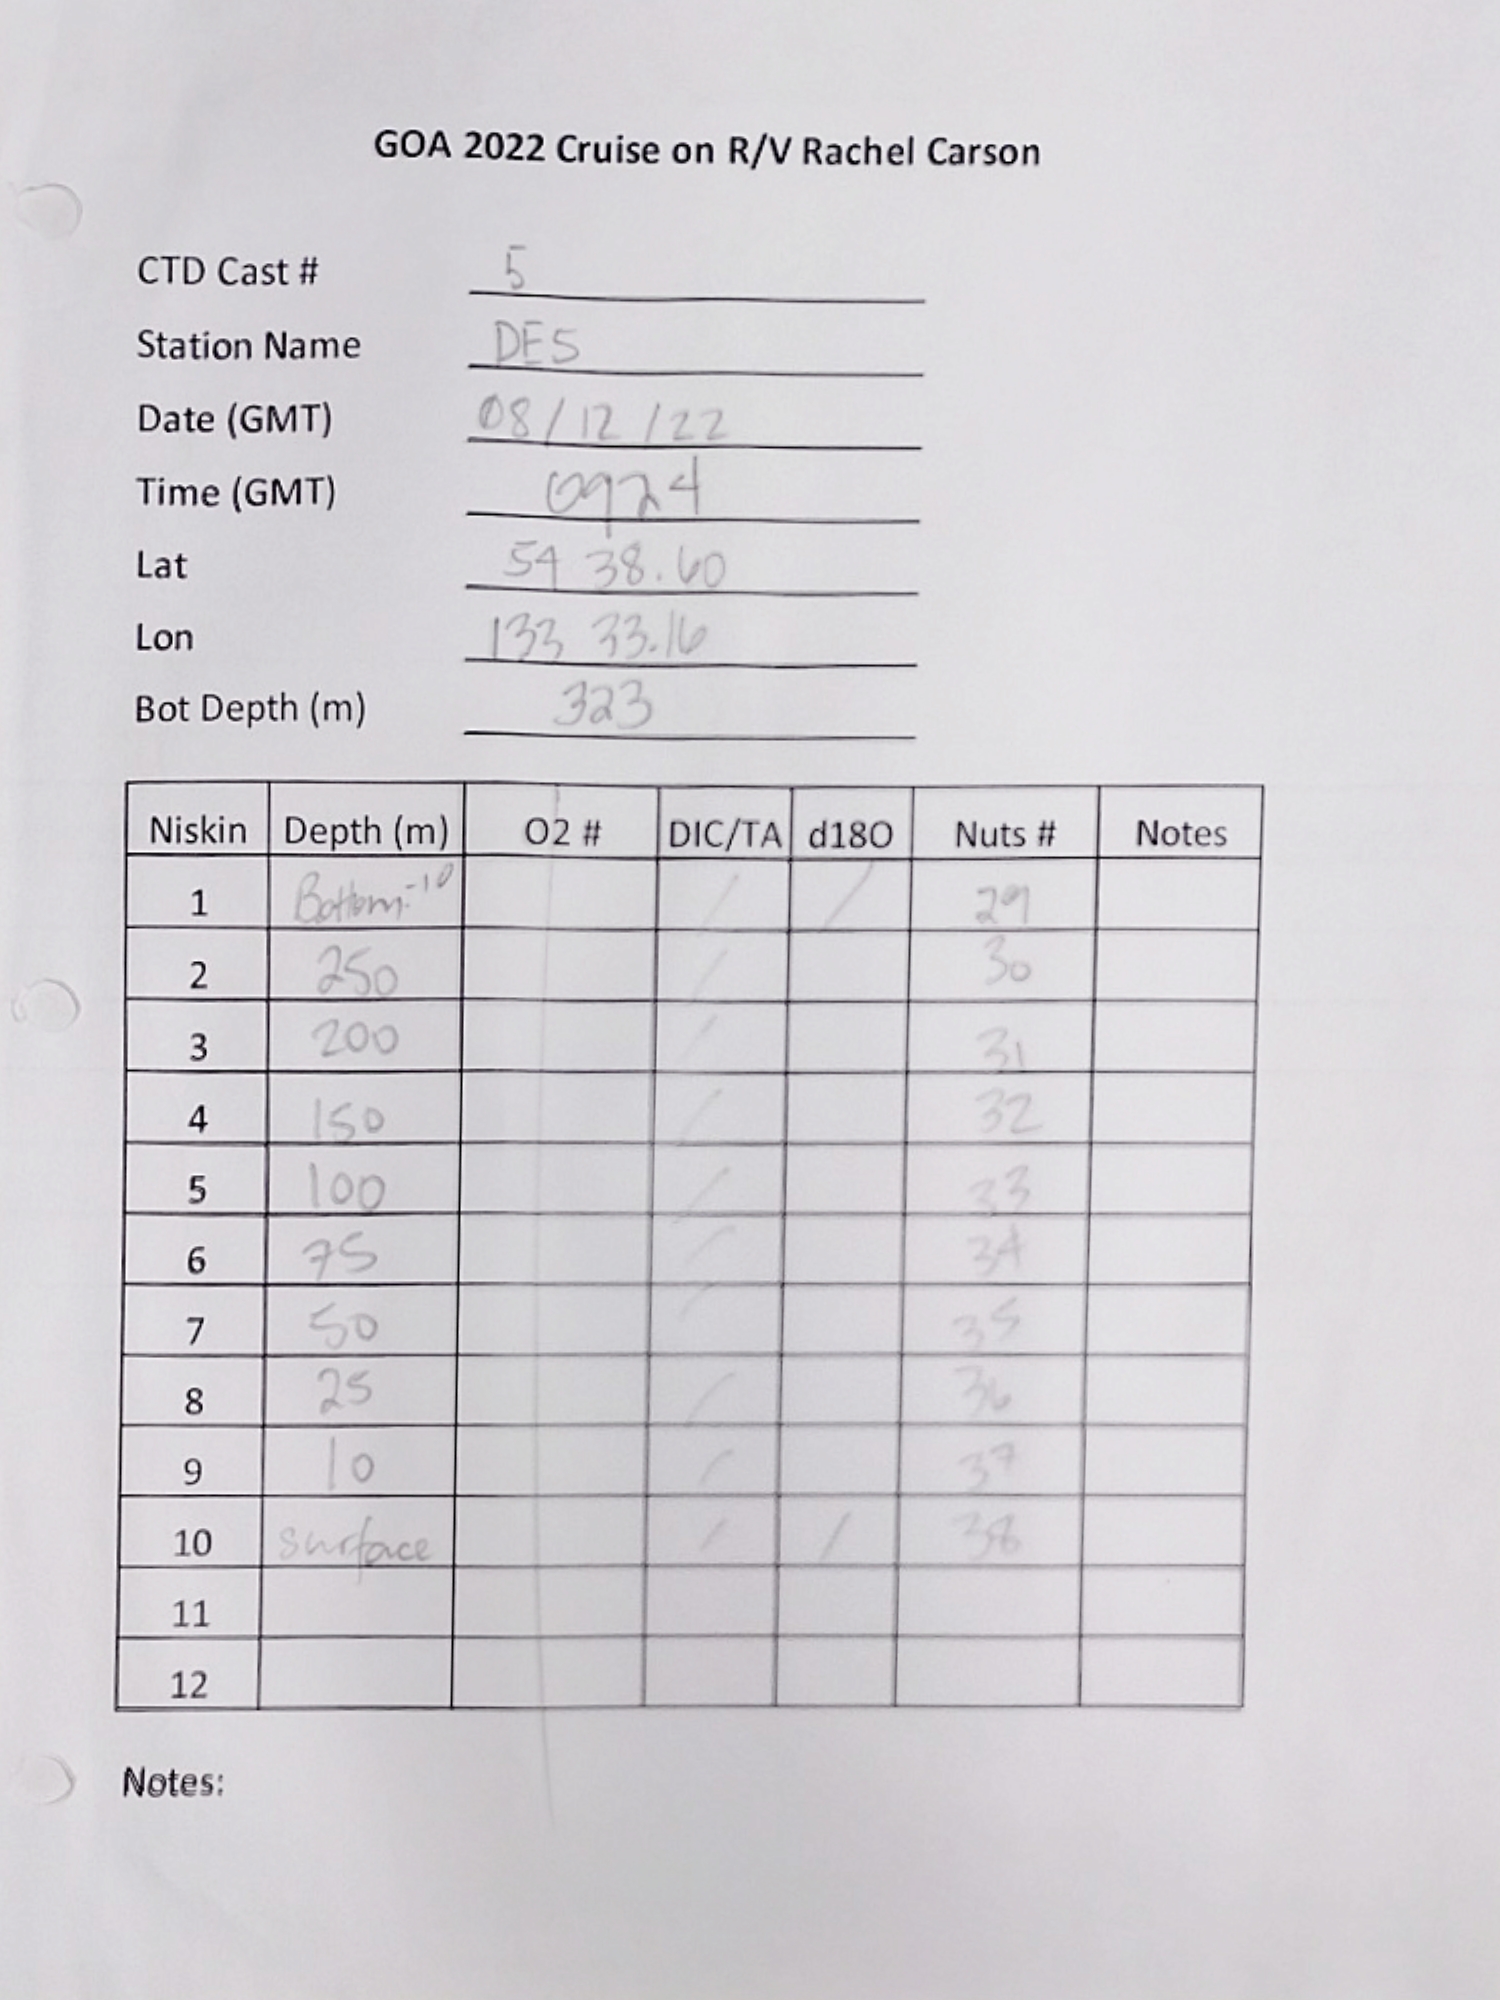 GOA 2022 Cruise on R/V Rachel Carson
CTD Cast # 5
Station Name DE5
Date (GMT) 08/12/22
Time (GMT) 0924
Lat 54 38.60
Lon 133 33.16
Bot Depth (m) 323
Niskin Depth (m) O2 # DIC/TA d18O Nuts # Notes
1 Bottom-10 / / 29
2 250 / 30
3 200 / 31
4 150 / 32
5 100 / 33
6 75 / 34
7 50 / 35
8 25 / 36
9 10 / 37
10 surface / / 38
11
12
Notes: